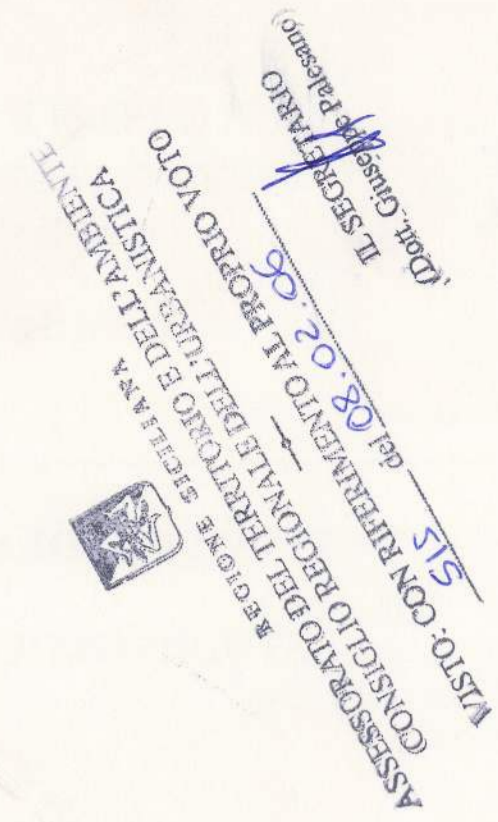 REGIONE SICILIANA
ASSESSORATO DEL TERRITORIO E DELL'AMBIENTE
CONSIGLIO REGIONALE DELL'URBANISTICA
VISTO: CON RIFERIMENTO AL PROPRIO VOTO
515 del 08.02.06
IL SEGRETARIO
(Dott. Giuseppe Palesano)